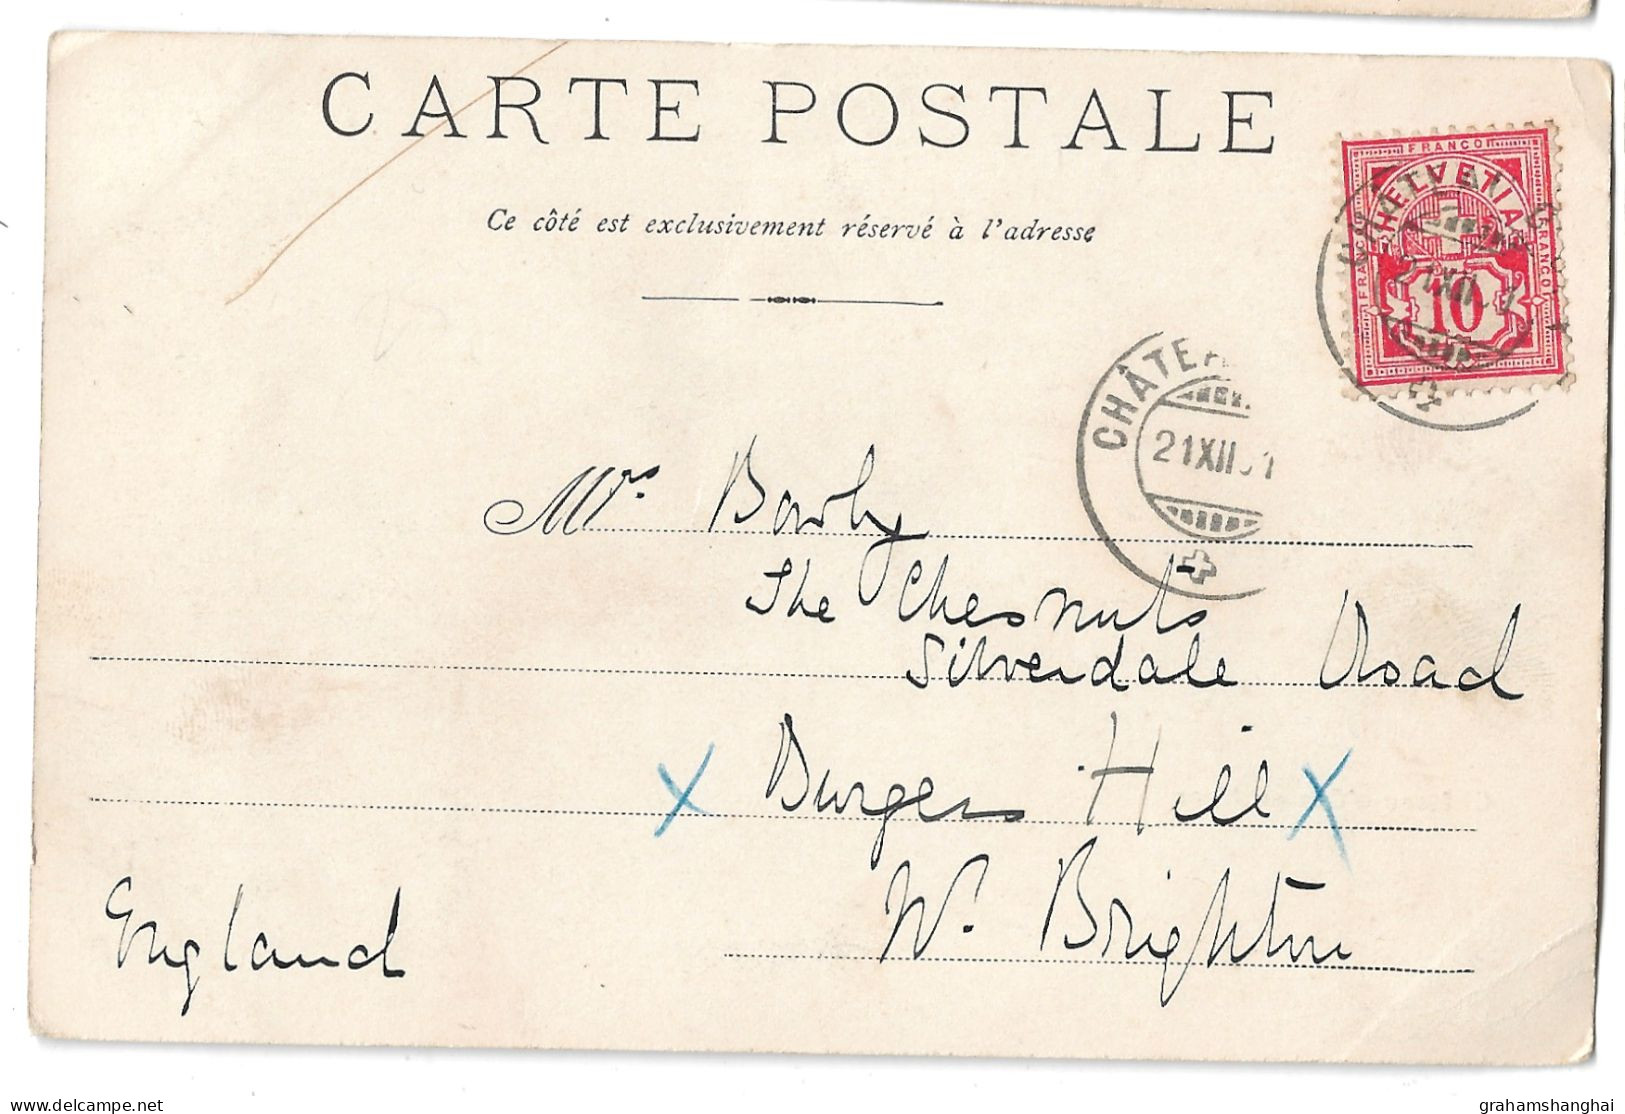 CARTE POSTALE
Ce côté est exclusivement réservé à l'adresse
FRANCO
HELVETIA
FRANCO
FRANCO
10
21 XII
CHÂTE
21XII 01
Mrs Bowlby
The Chesnuts
Silverdale Road
X Burgess Hill X
Nr. Brighton
England
delcampe.net
grahamshanghai